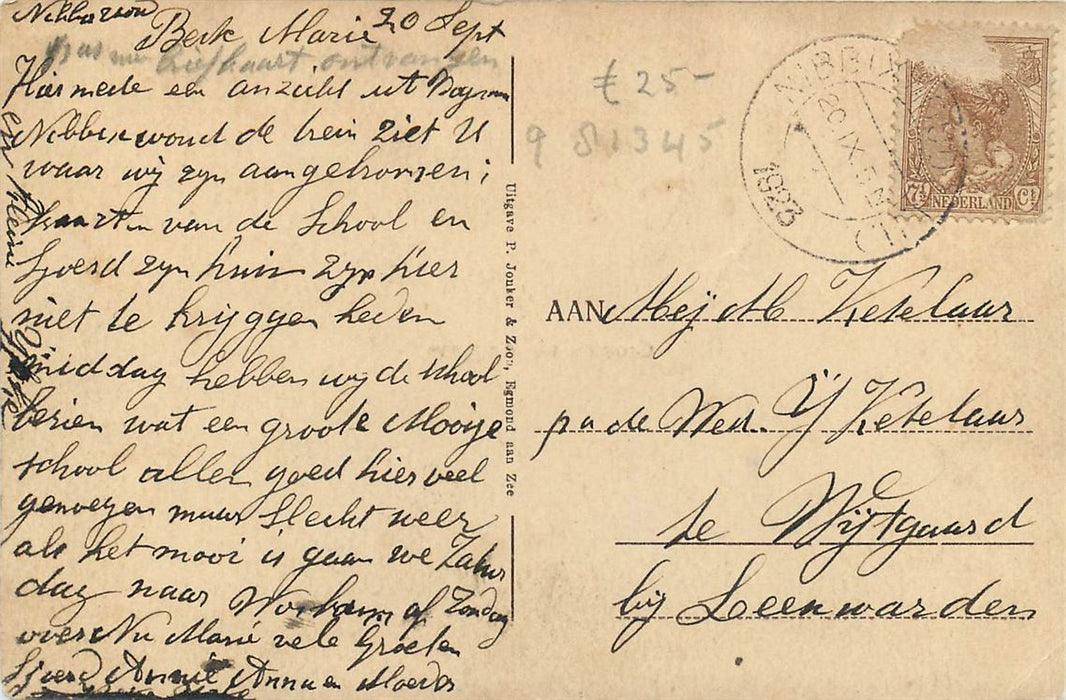 Nibbixwoud
20 Sept
Beste Marie
kaart ontvangen
Hiermede een anzicht uit
Nibbixwoud de trein ziet U
waar wij zijn aangekomen;
kaarten van de School en
Sjoerd zijn huis zijn hier
niet te krijggen heden
middag hebben wij de school
bezien wat een groote Mooije
school alles goed hier veel
genoegen maar Slecht weer
als het mooi is gaan we Zatur
dag naar of Zondag
over Nu Marie vele Groeten
Sjoerd Annie Anna en Moeder
en kleine
Uitgave P. Jonker & Zoon, Egmond aan Zee
€ 25-
9 81345
NIBBIX
20 IX 5
1923
7½ NEDERLAND Ct
AAN Mej M Ketelaar
p a de Wed. IJ Ketelaar
te Wijtgaard
bij Leeuwarden